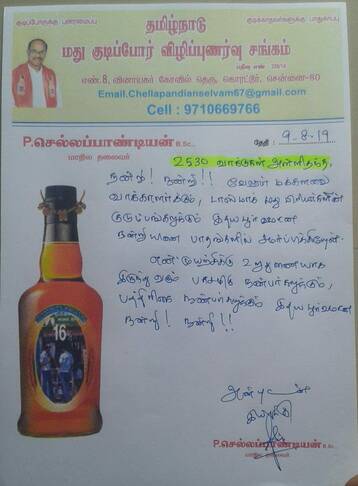 குடிப்போருக்கு பண்மைப்பு
குடிக்காதவர்களுக்கு பாதுகாப்பு
தமிழ்நாடு
மது குடிப்போர் விழிப்புணர்வு சங்கம்
பதிவு எண்.
எண்.8, விநாயகர் கோவில் தெரு, கொரட்டூர், சென்னை-80
Email.Chellapandianselvam67@gmail.com
Cell : 9710669766
P.செல்லப்பாண்டியன் B.Sc.,
மாநில தலைவர்
தேதி : 9.8.19
2530 வாக்குகள் அள்ளித்தந்த
நன்றி! நன்றி!! வேலூர் மக்களவை
வாக்காளர்க்கும், மது பிரியர்களின்
குடும்பங்களுக்கும் இதயபூர்வமான
நன்றியினை பாதங்களில் சமர்ப்பிக்கிறேன்.
என் முயற்சிக்கு உறுதுணையாக
இருந்து வரும் நண்பர்களுக்கும்,
பத்திரிகை நண்பர்களுக்கும் இதயபூர்வமான
நன்றி! நன்றி!!
16
அன்புடன்
P.செல்லப்பாண்டியன் B.Sc.,
மாநில தலைவர்